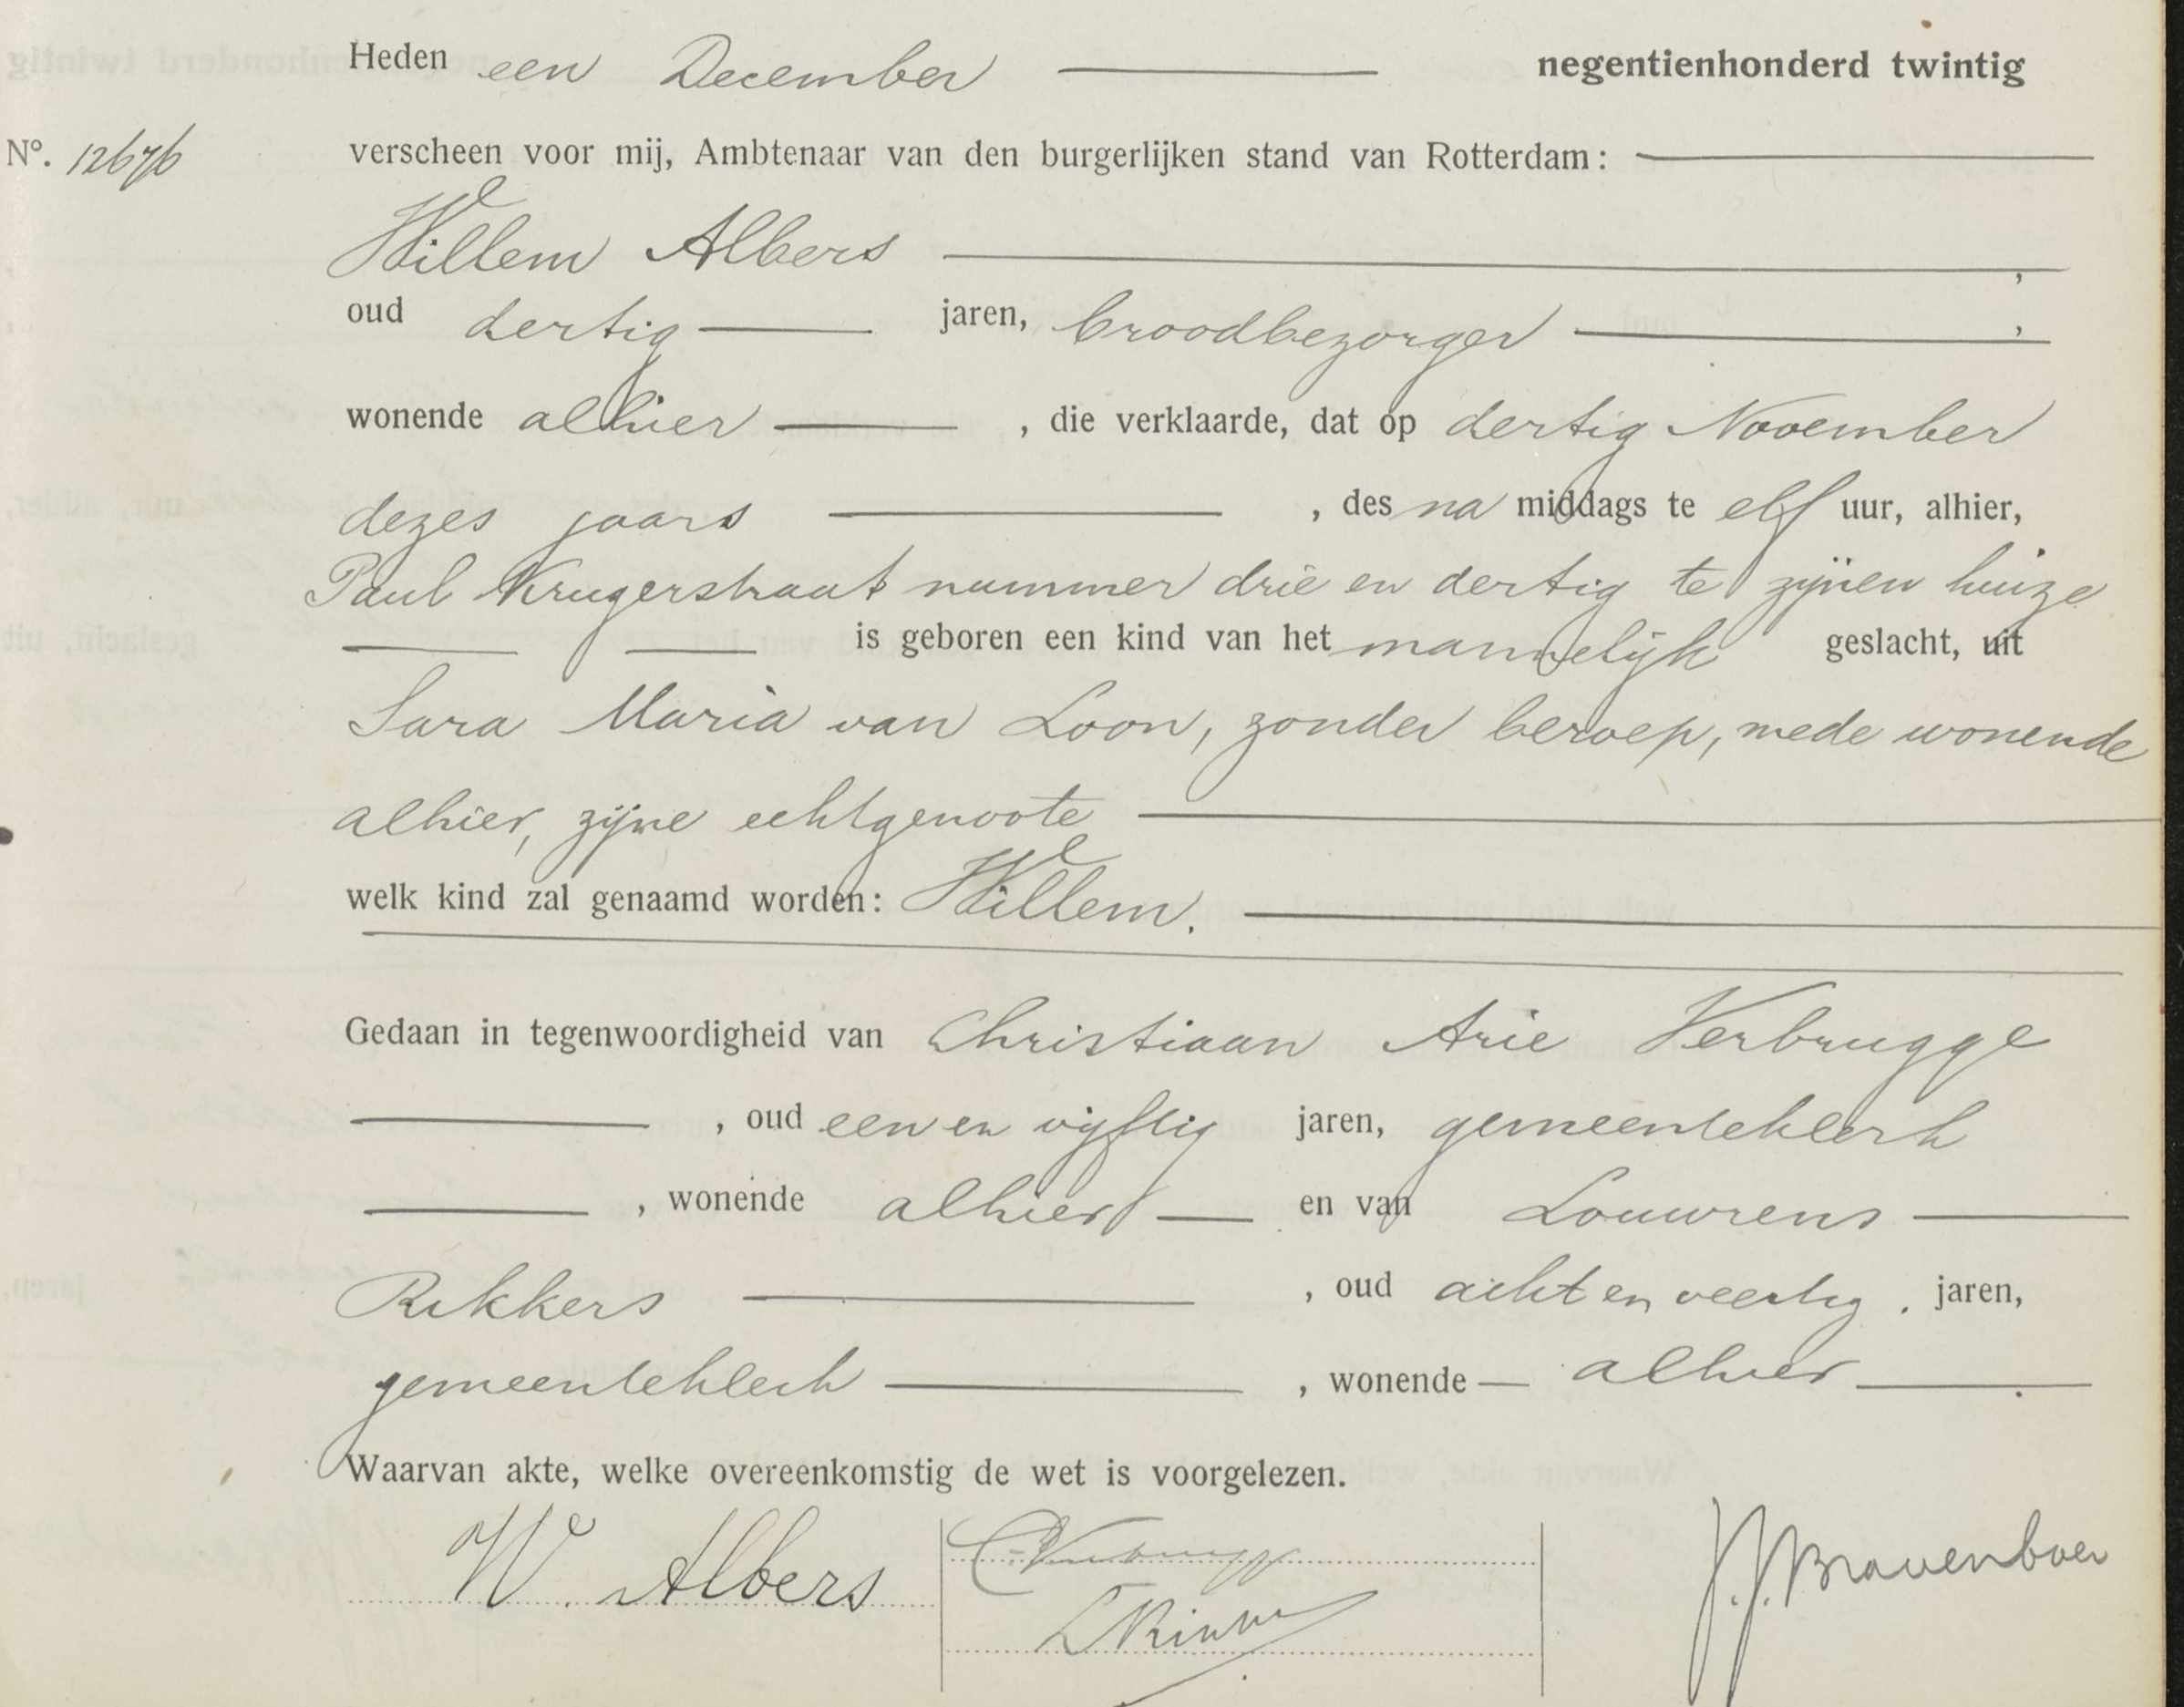 Heden een December negentienhonderd twintig
No. 12676 verscheen voor mij, Ambtenaar van den burgerlijken stand van Rotterdam:
Willem Albers ,
oud dertig jaren, broodbezorger ,
wonende alhier , die verklaarde, dat op dertig November
dezes jaars , des na middags te elf uur, alhier,
Paul Krugerstraat nummer drie en dertig te zijnen huize
is geboren een kind van het mannelijk geslacht, uit
Sara Maria van Loon, zonder beroep, mede wonende
alhier, zijne echtgenoote
welk kind zal genaamd worden: Willem.
Gedaan in tegenwoordigheid van Christiaan Arie Verbrugge
, oud een en vijftig jaren, gemeenteklerk
, wonende alhier en van Louwrens
Rikkers , oud acht en veertig . jaren,
gemeenteklerk , wonende alhier .
Waarvan akte, welke overeenkomstig de wet is voorgelezen.
W. Albers J.J. Bravenboer